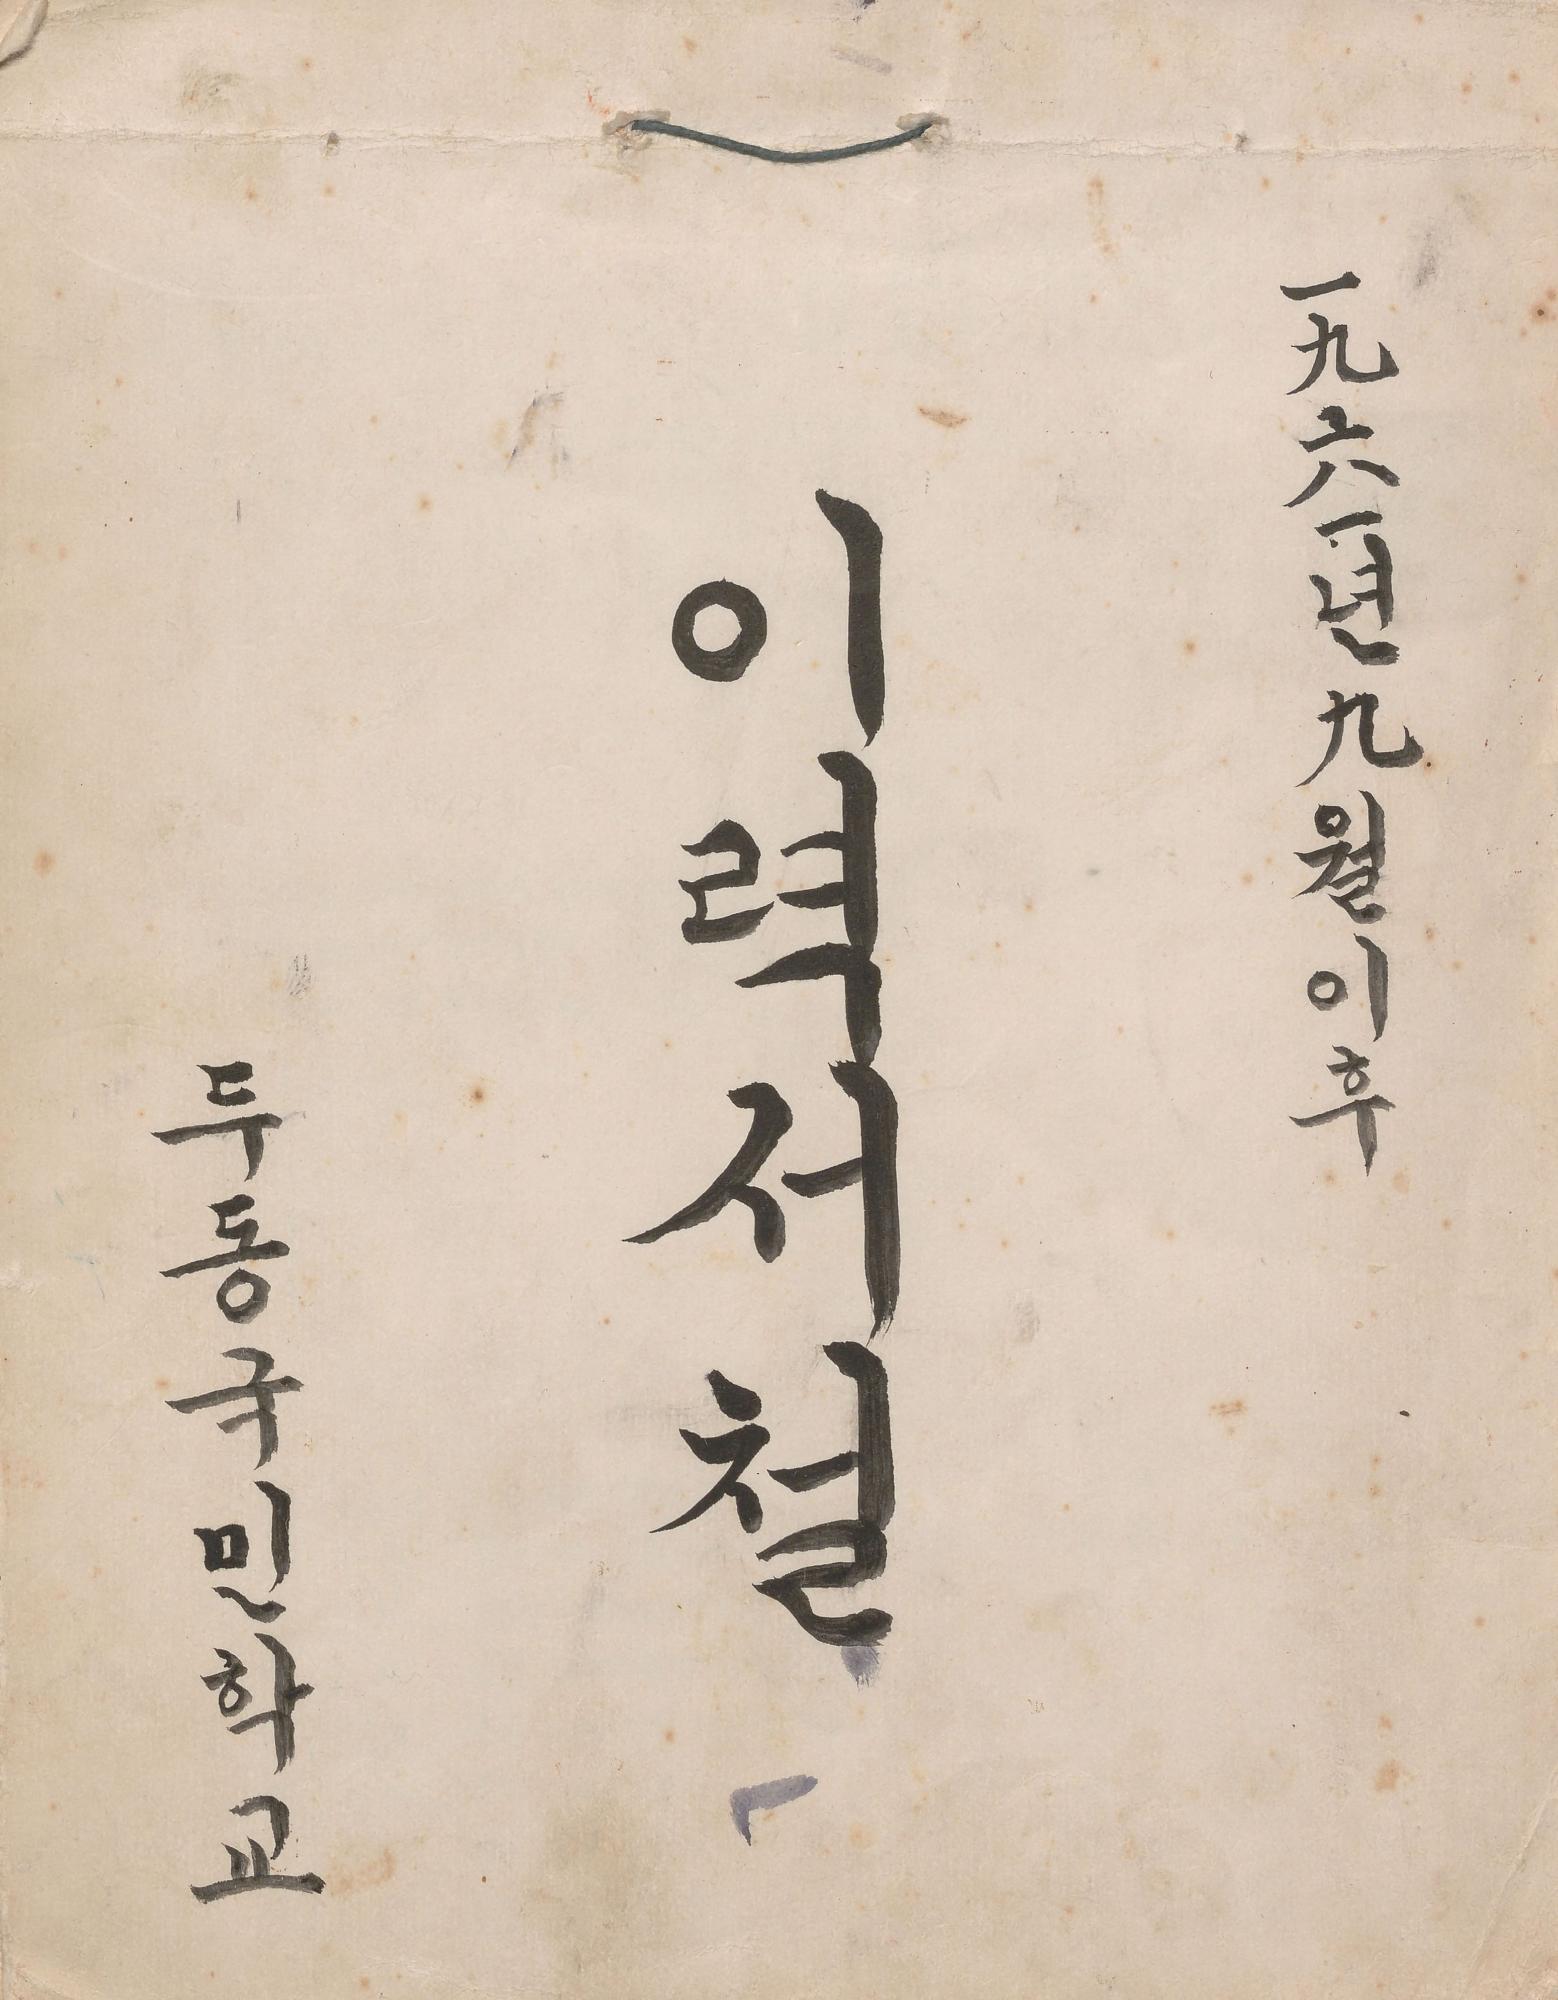 一九六一년 九월이후
이력서철
두동국민학교